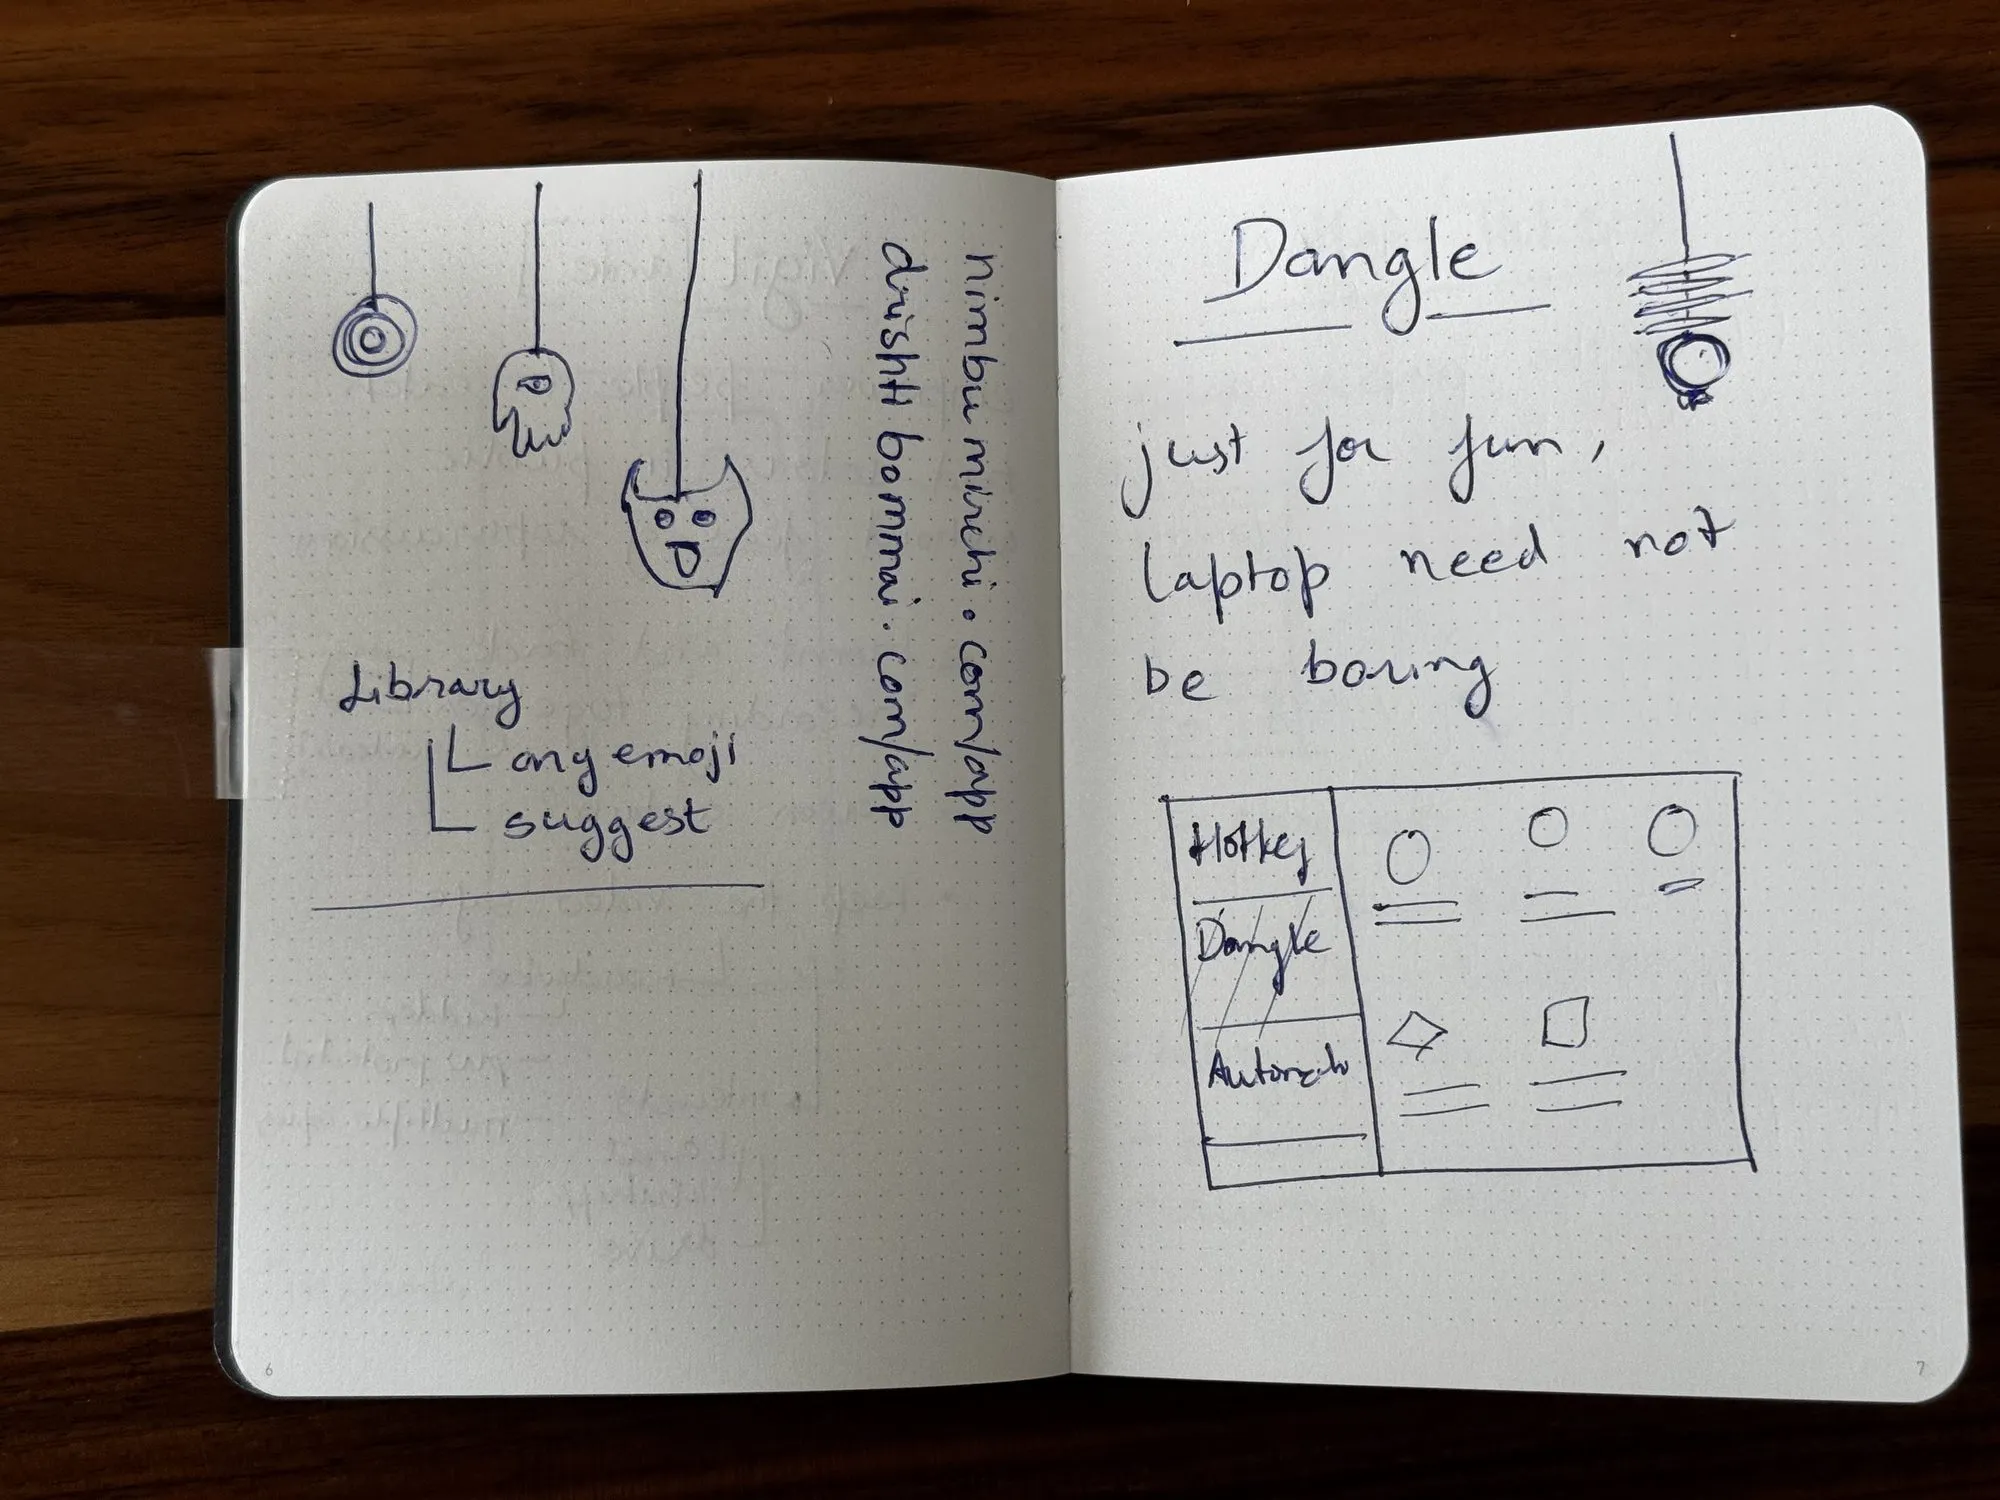 Library
any emoji
suggest
nimbu mirchi.com/app
drishti bommai.com/app
6
Dangle
just for fun,
laptop need not
be boring
Hotkey
Dangle
7